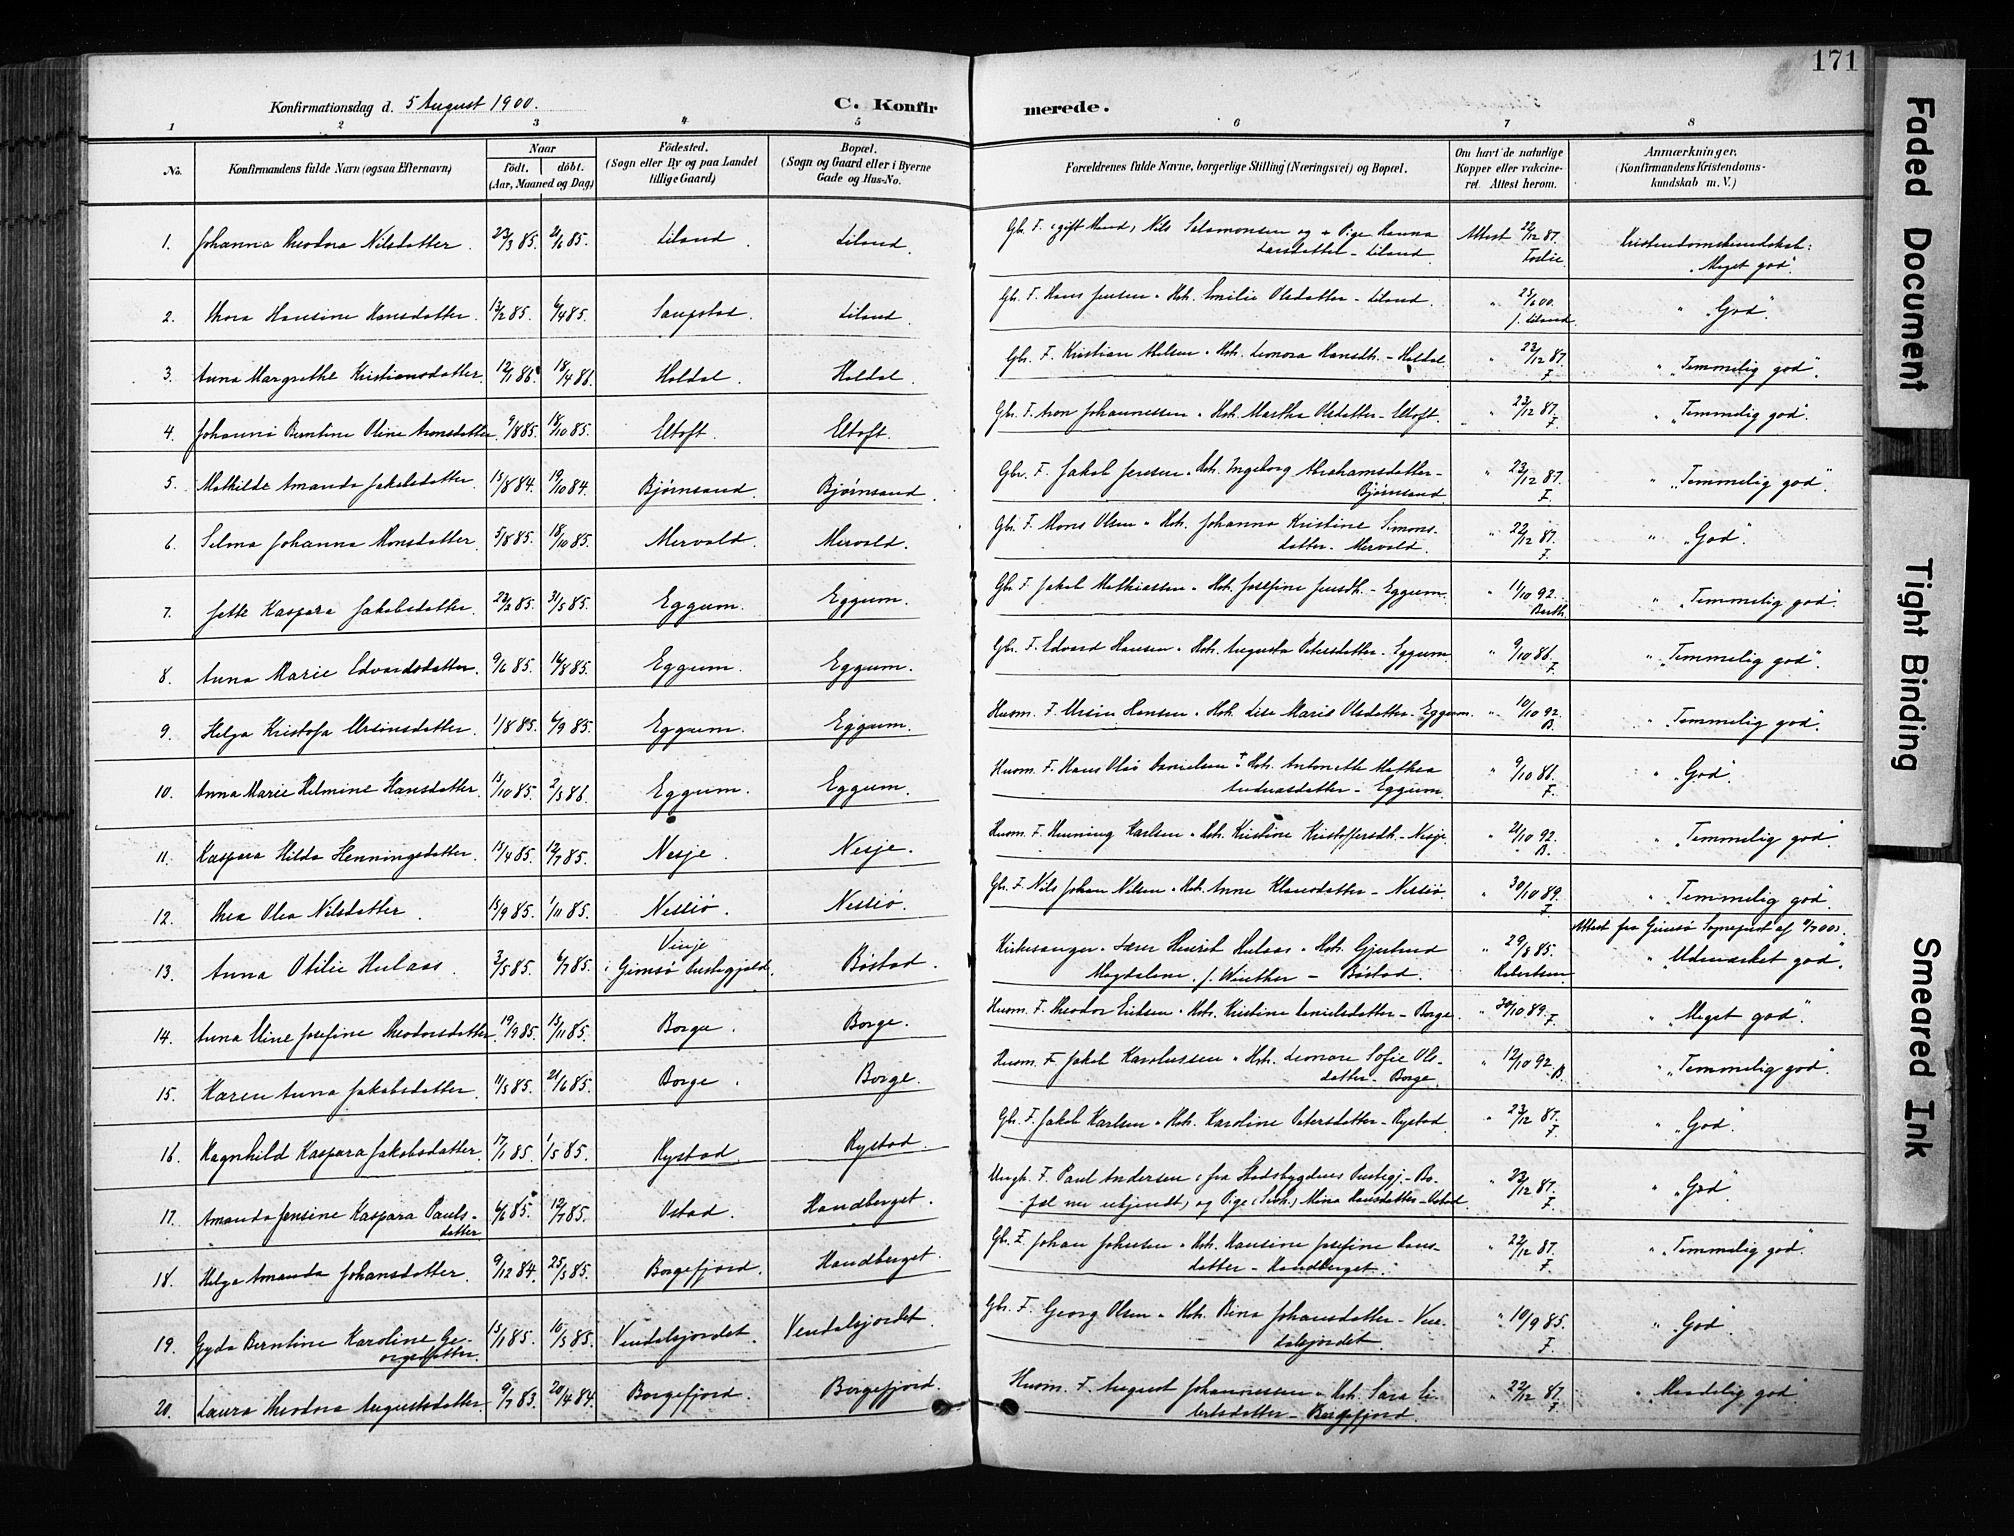 171
Konfirmationsdag d. 5 August 1900.
C. Konfirmerede.
1 2 3 4 5 6 7 8
No.
Konfirmandens fulde Navn (ogsaa Efternavn)
Naar
födt. döbt.
(Aar, Maaned og Dag)
Födested.
(Sogn eller By og paa Landet
tillige Gaard)
Bopæl.
(Sogn og Gaard eller i Byerne
Gade og Hus-No.
Forældrenes fulde Navne, borgerlige Stilling (Næringsvei) og Bopæl.
Om havt de naturlige
Kopper eller vakcine-
ret. Attest herom.
Anmærkninger.
(Konfirmandens Kristendoms-
kundskab m. V.)
1. Johanna Theodora Nilsdatter. 23/3 85. 21/6 85. Liland. Liland. Gbr. F. (gift Mand) Nils Salamonsen og Pige Hanna
Larsdatter - Liland. Attest 22/12 87. Kristendomskundskab:
"Meget god".
2. Thora Hansine Hansdatter. 13/2 85. 6/4 85. Saupstad. Liland. Gbr. F. Hans Jensen " Hst. Emilie Olsdatter - Liland. " 25/6 00. " "God".
J. Liland
3. Anna Margrethe Kristiansdatter. 12/1 86. 18/4 86. Haldal. Haldal. Gbr. F. Kristian Nilsen " Hst. Leonora Hansdt. - Haldal. " 22/12 87. F. " "Temmelig god".
4. Johanna Berntine Oline Aronsdatter. 9/8 85. 18/10 85. Eltoft. Eltoft. Gbr. F. Aron Johannessen " Hst. Martha Olsdatter - Eltoft. " 23/12 87. F. " "Temmelig god".
5. Mathilde Amanda Jakobsdatter. 15/8 84. 19/10 84. Bjørnsand. Bjørnsand. Gbr. F. Jakob Jensen " Hst. Ingeborg Abrahamsdatter -
Bjørnsand. " 23/12 87. F. " "Temmelig god".
6. Selma Johanna Monsdatter. 5/8 85. 18/10 85. Mervold. Mervold. Gbr. F. Mons Olsen " Hst. Johanna Kristine Simons-
datter - Mervold. " 22/12 87. F. " "God".
7. Jette Kaspara Jakobsdatter. 22/2 85. 31/5 85. Eggum. Eggum. Gbr. F. Jakob Mathiassen " Hst. Josefine Jensdt. - Eggum. " 11/10 92. " "Temmelig god".
8. Anna Marie Edvardsdatter. 9/6 85. 16/8 85. Eggum. Eggum. Gbr. F. Edvard Hansen " Hst. Augusta Petersdatter - Eggum. " 9/10 86. F. " "Temmelig god".
9. Helga Kristofa Ursinsdatter. 1/8 85. 6/9 85. Eggum. Eggum. Husm. F. Ursin Hansen " Hst. Lise Marie Olsdatter - Eggum. " 10/10 92. B. " "Temmelig god".
10. Anna Marie Helmine Hansdatter. 15/10 85. 2/5 86. Eggum. Eggum. Husm. F. Hans Olai Danielsen " Hst. Antonette Mathea
Andreasdatter - Eggum. " 9/10 86. F. " "God".
11. Kaspara Hilda Henningsdatter. 15/4 85. 12/7 85. Nesje. Nesje. Husm. F. Henning Karlsen " Hst. Kristine Kristoffersdt. - Nesje. " 21/10 92. B. " "Temmelig god".
12. Thea Olea Nilsdatter. 15/9 85. 1/11 85. Nessiø. Nessiø. Gbr. F. Nils Johan Nilsen " Hst. Anne Klausdatter - Nessiø. " 30/10 89. F. " "Temmelig god".
13. Anna Otilie Hulaas. 3/5 85. 6/7 85. Vinje
i Gimsø Prestegjeld. Bøstad. Kirkesanger " Lærer Henrik Hulaas " Hst. Gjertrud
Magdalene f. Winther - Bøstad. " 29/8 85.
Robertsen Attest fra Gimsø Sogneprest
" "Udmærket god".
14. Anna Eline Josefine Theodorsdatter. 19/9 85. 15/11 85. Borge. Borge. Husm. F. Theodor Eriksen " Hst. Kristine Danielsdatter - Borge. " 30/10 89. F. " "Meget god".
15. Karen Anna Jakobsdatter. 11/5 85. 21/6 85. Borge. Borge. Husm. F. Jakob Karolussen " Hst. Leonore Sofie Ols-
datter - Borge. " 12/10 92. B. " "Temmelig god".
16. Ragnhild Kaspara Jakobsdatter. 17/1 85. 1/5 85. Rystad. Rystad. Gbr. F. Jakob Karlsen " Hst. Karoline Petersdatter - Rystad. " 23/12 87. F. " "God".
17. Amanda Jensine Kaspara Pauls-
datter 6/6 85. 12/7 85. Ostad. Handberget. Ungk. F. Paul Andersen (fra Stadsbygdens Prestegj. - Bo-
pæl nu ukjendt) og Pige Mina Hansdatter - Ostad. " 22/12 87. F. " "God".
18. Helga Amanda Johansdatter. 9/12 84. 25/5 85. Borgefjord. Handberget. Gbr. F. Johan Johnsen " Hst. Hansine Josefine Hans-
datter - Handberget. " 22/12 87. F. " "Temmelig god".
19. Gyda Berntine Karoline Ge-
orgsdatter. 15/1 85. 16/5 85. Vendalsjordet. Vendalsjordet. Gbr. F. Georg Olsen " Hst. Bina Johansdatter - Ven-
dalsjordet. " 10/9 85. F. " "God".
20. Laura Theodora Augustsdatter. 9/7 83. 20/4 84. Borgefjord. Borgefjord. Husm. F. August Johannessen " Hst. Sara Li-
bertsdatter - Borgefjord. " 22/12 87. F. " "Maadelig god".
Faded Document
Tight Binding
Smeared Ink